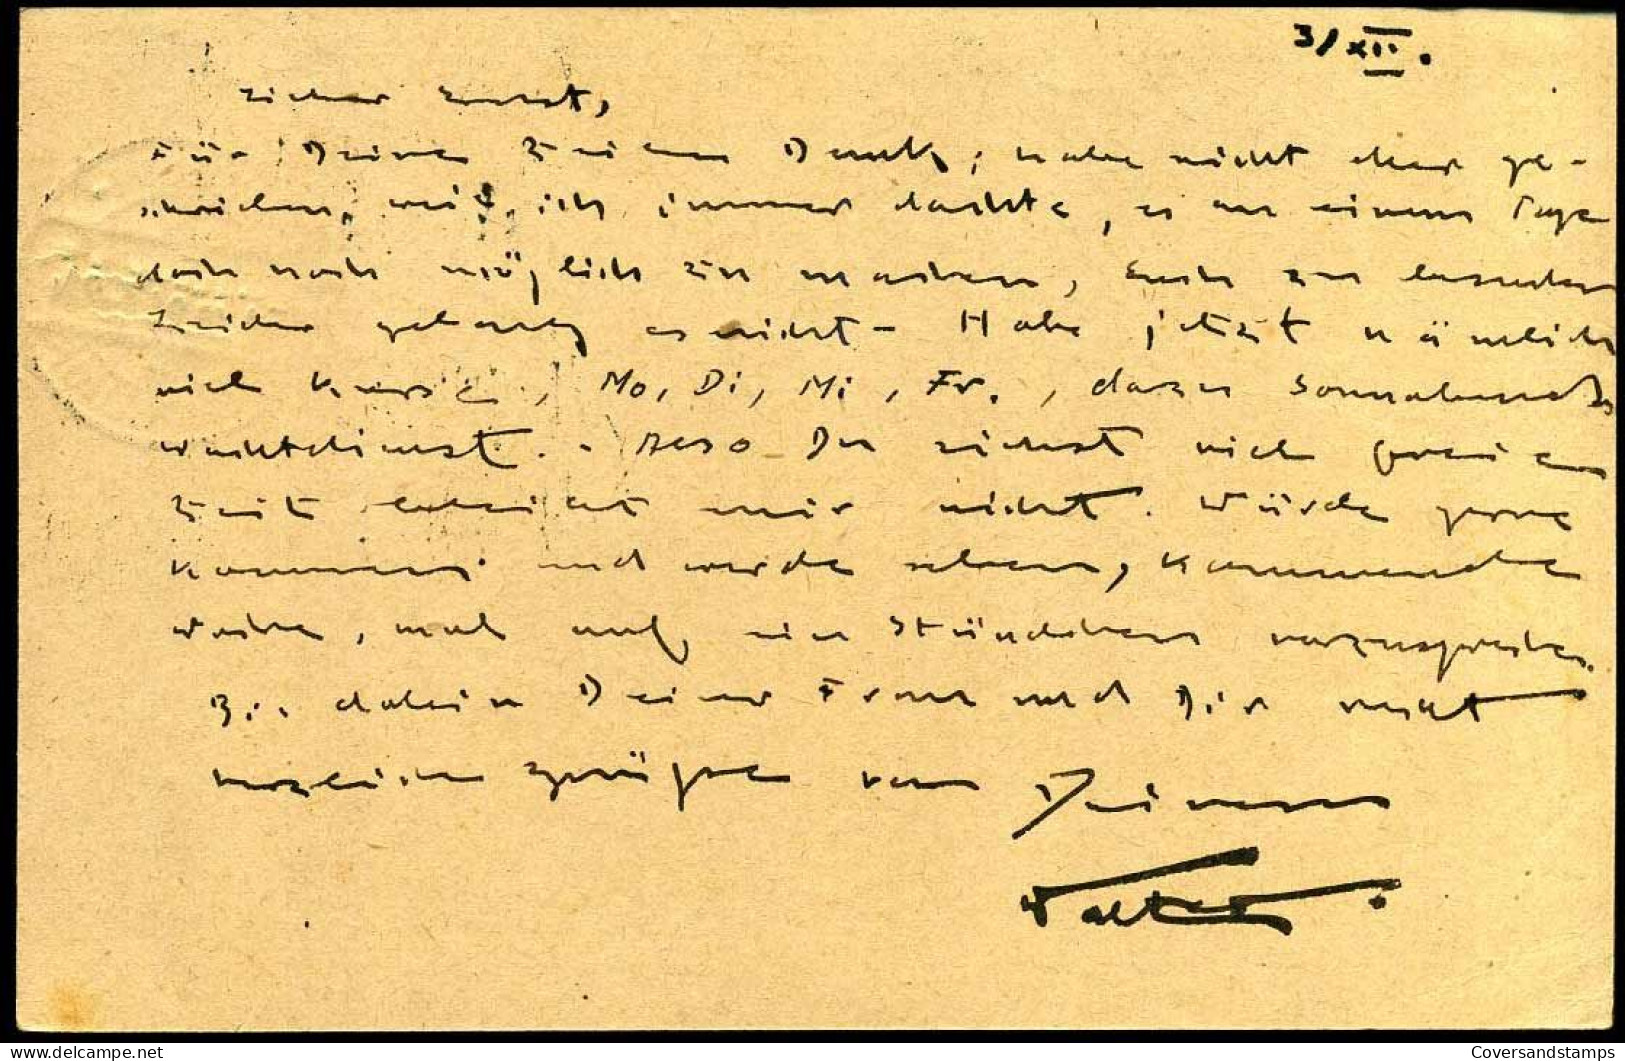 3/XII.
Lieber Ernst,
Für Deine Zeilen Dank; habe nicht eher ge-
schrieben, weil ich immer dachte, es an einem Tage
doch noch möglich zu machen, Euch zu besuchen
Leider gelang es nicht – Habe jetzt nämlich
viel Kurse, Mo, Di, Mi, Fr., dazu Sonnabends
Wachtdienst. - Also Du siehst viel freie
Zeit bleibt mir nicht. Würde gerne
kommen und werde sehen, kommende
Woche, mal auf ein Stündchen vorzusprechen.
Bis dahin Deiner Frau und Dir recht
herzliche Grüße von Deinem
Walter.
Coversandstamps